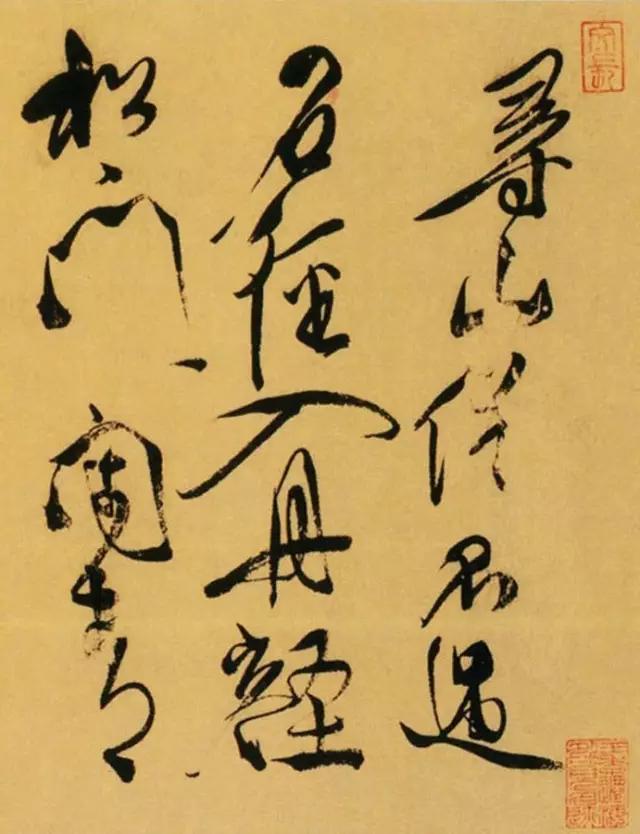 尋山僧不遇
石徑入丹壑
松門閉青